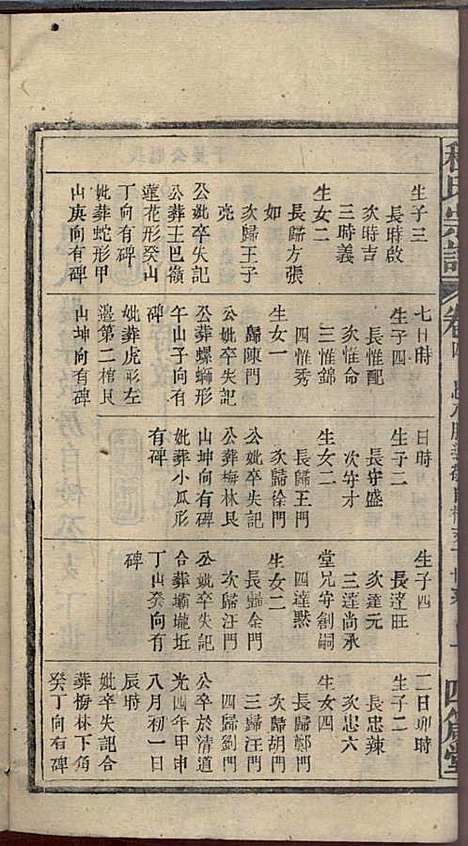 生子三
長時啟
次時吉
三時義
生女二
長歸方張
次歸王子
如
亮
公妣卒失記
公葬王巴嶺
蓮花形癸山
丁向有碑
妣葬蛇形甲
山庚向有碑
七日時
生子四
長惟配
次惟命
三惟錦
四惟秀
生女一
歸陳門
公妣卒失記
公葬螺螄形
午山子向有
碑
妣葬虎形左
邉第二棺艮
山坤向有碑
日時
生子二
長守盛
次守才
生女二
長歸王門
次歸徐門
公妣卒失記
公葬梅林艮
山坤向有碑
妣葬小瓜形
有碑
生子四
長達旺
次達元
三達尚承
堂兄守創嗣
四達黙
生女二
長歸金門
次歸汪門
公妣卒失記
合葬壩壠坵
丁山癸向有
碑
二日卯時
生子二
長忠辣
次忠六
生女四
長歸鄭門
次歸胡門
三歸汪門
四歸劉門
公卒於清道
光四年甲申
八月初一日
辰時
妣卒失記合
葬梅林下角
癸丁向有碑
程氏宗譜 卷四